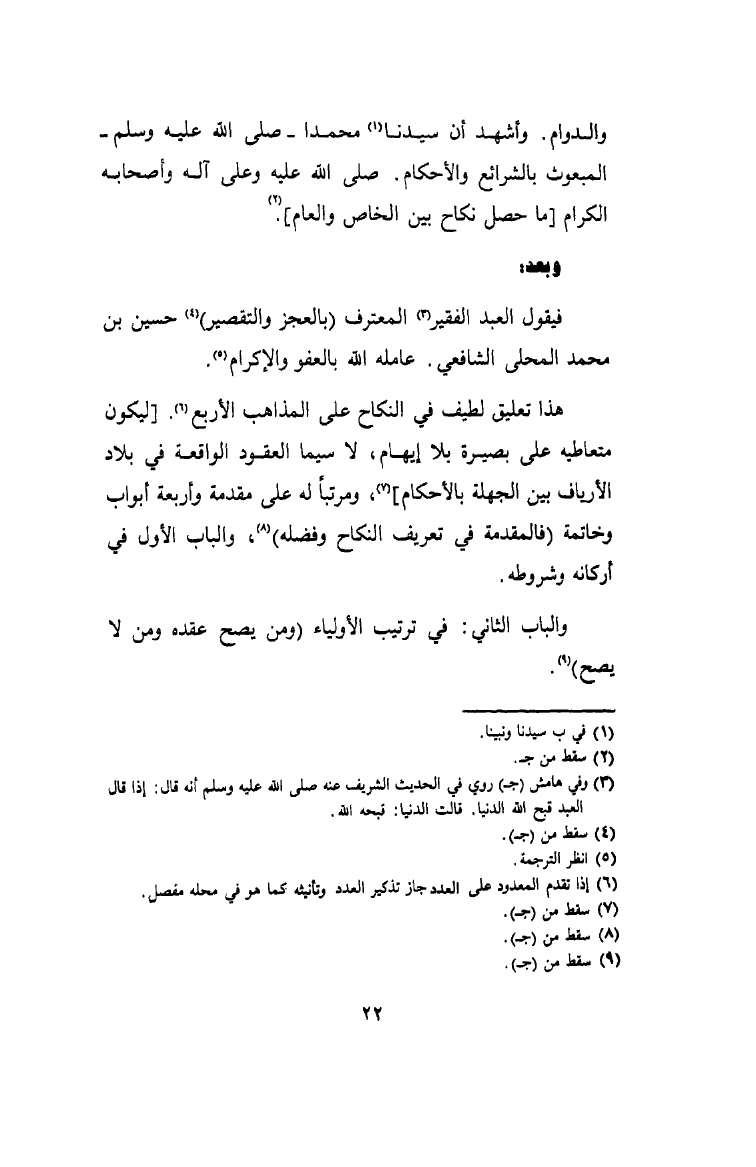 والـدوام. وأشهـد أن سيـدنـا(١) محمـدا ـ صلى الله عليـه وسلم ـ
المبعوث بالشرائع والأحكام. صلى الله عليه وعلى آلـه وأصحابـه
الكرام [ما حصل نكاح بين الخاص والعام].(٢)
وبعد:
فيقول العبد الفقير(٣) المعترف (بالعجز والتقصير)(٤) حسين بن
محمد المحلى الشافعي. عامله الله بالعفو والإكرام(٥).
هذا تعليق لطيف في النكاح على المذاهب الأربع(٦). [ليكون
متعاطيه على بصيـرة بلا إيهـام، لا سيما العقـود الواقعـة في بلاد
الأرياف بين الجهلة بالأحكام](٧)، ومرتباً له على مقدمة وأربعة أبواب
وخاتمة (فالمقدمة في تعريف النكاح وفضله)(٨)، والباب الأول في
أركانه وشروطه.
والباب الثاني: في ترتيب الأولياء (ومن يصح عقده ومن لا
يصح)(٩).
(١) في ب سيدنا ونبينا.
(٢) سقط من جـ.
(٣) وفي هامش (جـ) روي في الحديث الشريف عنه صلى الله عليه وسلم أنه قال: إذا قال
العبد قبح الله الدنيا. قالت الدنيا: قبحه الله.
(٤) سقط من (جـ).
(٥) انظر الترجمة.
(٦) إذا تقدم المعدود على العدد جاز تذكير العدد وتأنيثه كما هو في محله مفصل.
(٧) سقط من (جـ).
(٨) سقط من (جـ).
(٩) سقط من (جـ).
٢٢